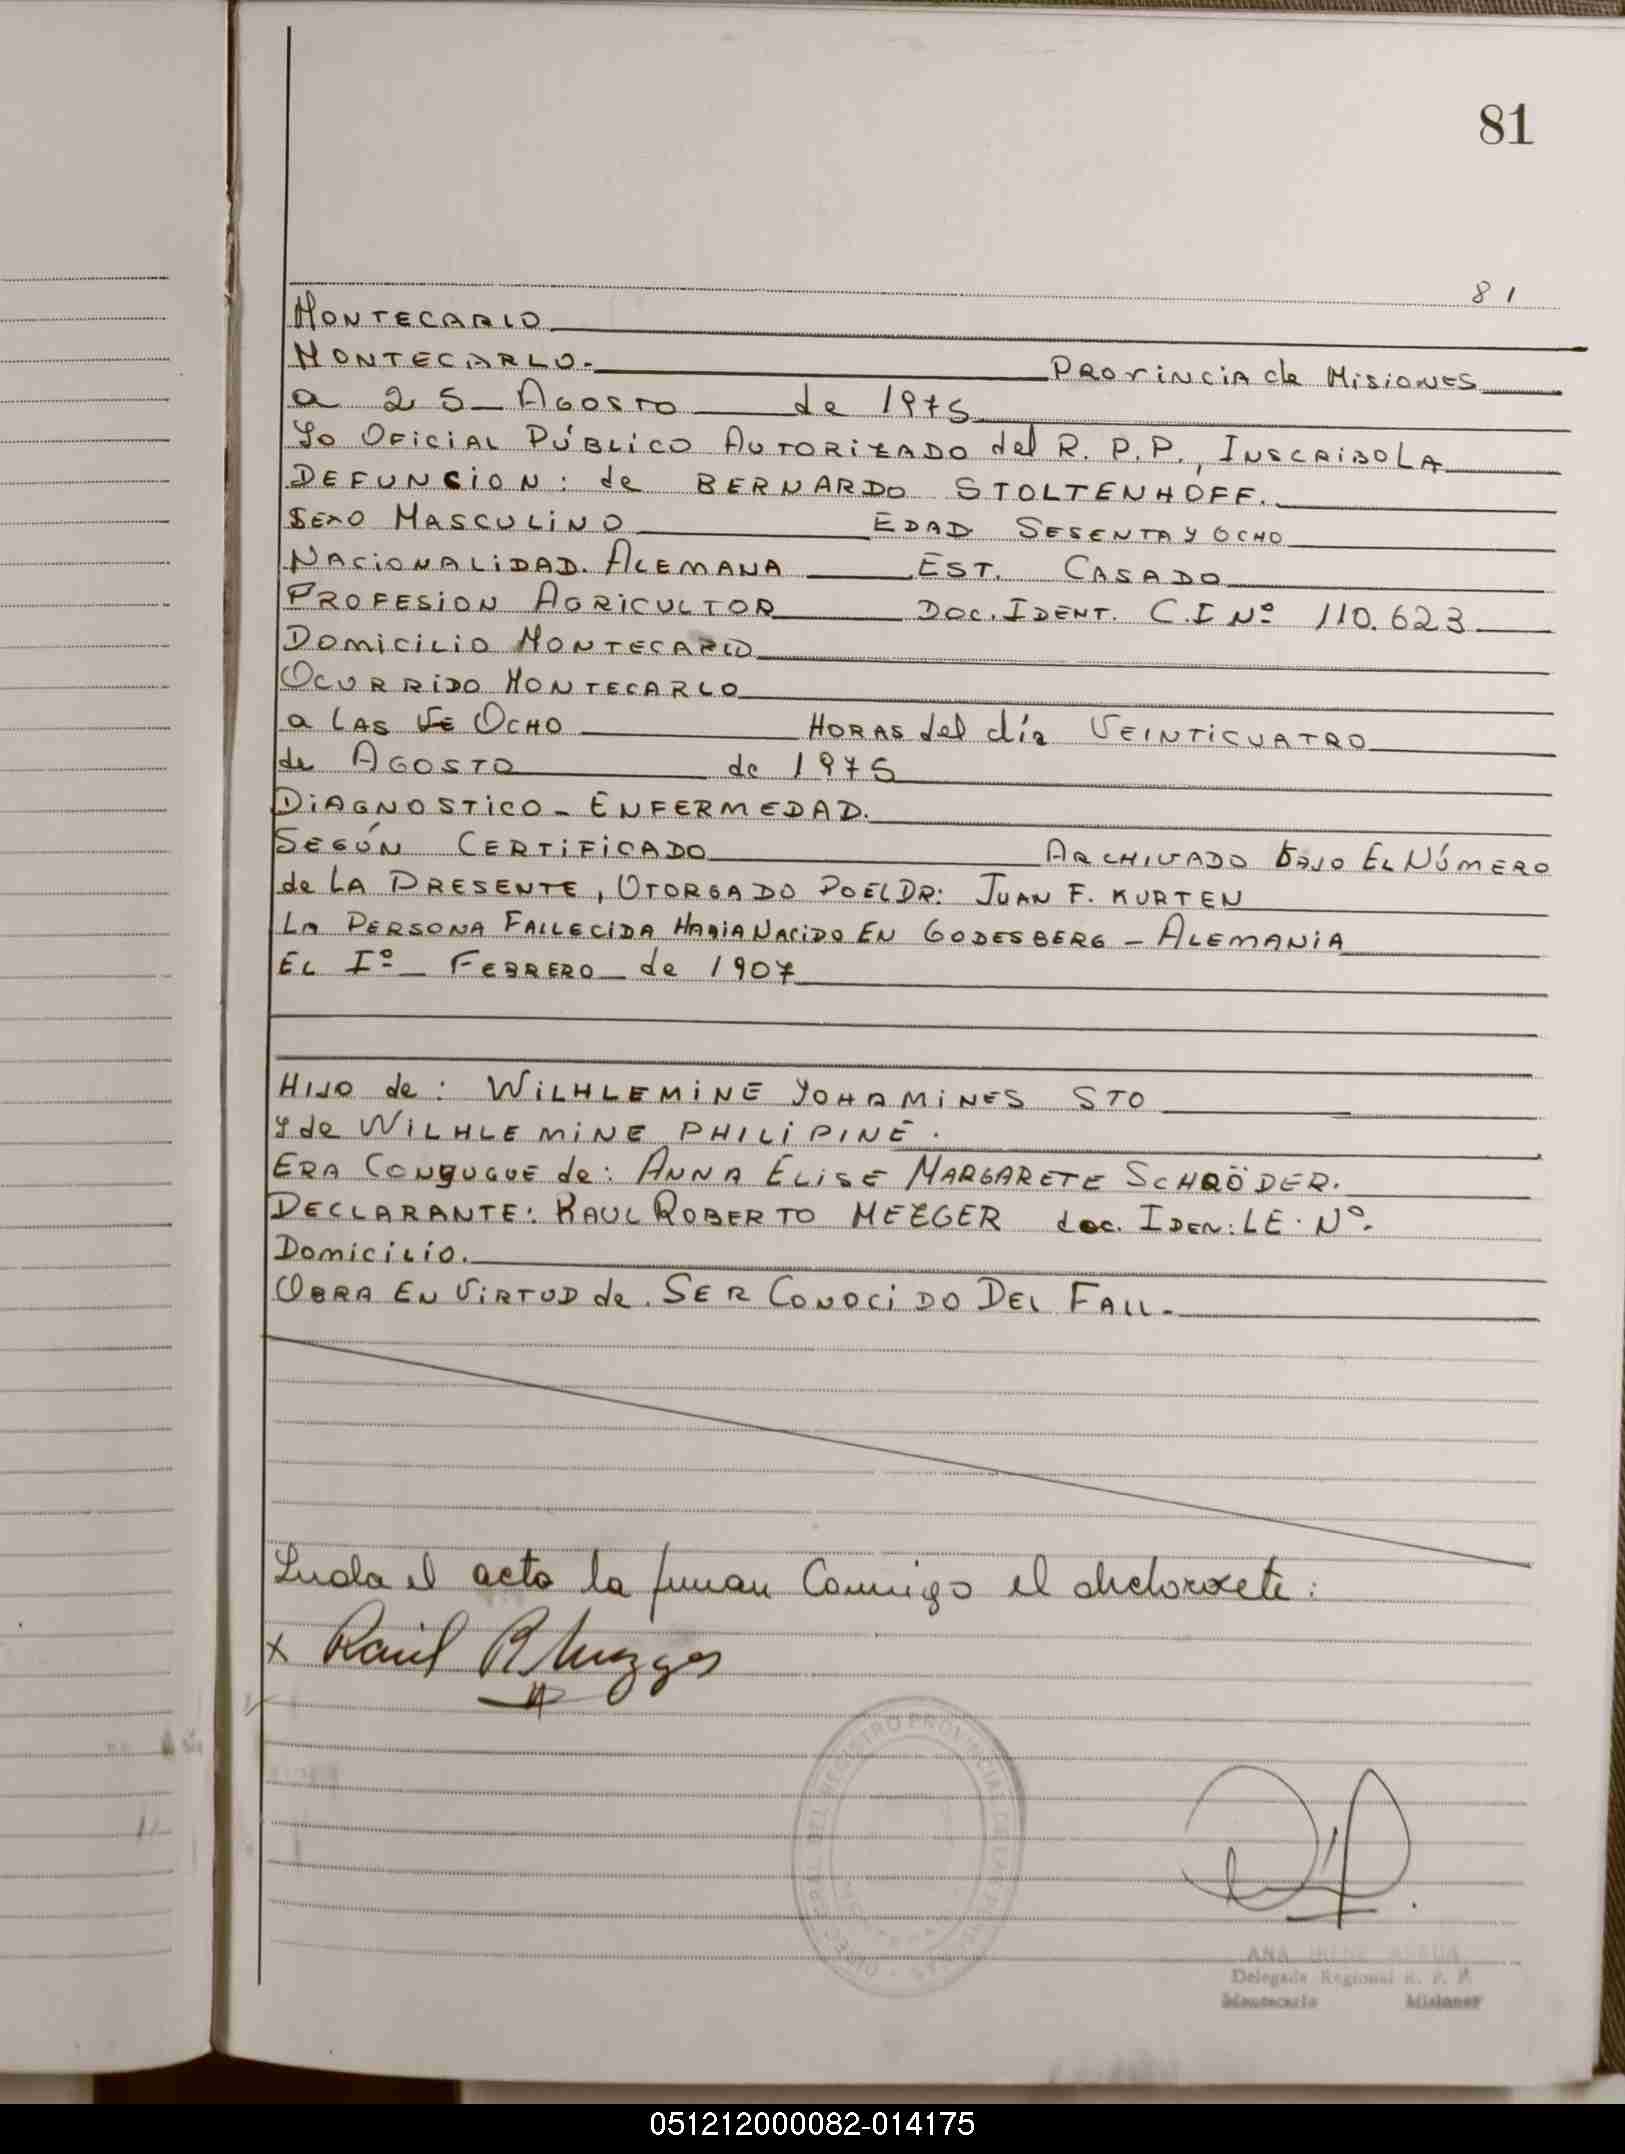 81
81
MONTECARLO
MONTECARLO. PROVINCIA de MISIONES
a 25 - AGOSTO de 1975
YO OFICIAL PÚBLICO AUTORIZADO del R. P. P., INSCRIBO LA
DEFUNCION: de BERNARDO STOLTENHOFF.
SEXO MASCULINO EDAD SESENTA Y OCHO
NACIONALIDAD. ALEMANA EST. CASADO
PROFESION AGRICULTOR DOC. IDENT. C.I Nº 110.623
DOMICILIO MONTECARLO
OCURRIDO MONTECARLO
a LAS VE OCHO HORAS del día VEINTICUATRO
de AGOSTO de 1975
DIAGNOSTICO - ENFERMEDAD.
SEGÚN CERTIFICADO ARCHIVADO BAJO EL NÚMERO
de LA PRESENTE, OTORGADO POEL DR: JUAN F. KURTEN
LA PERSONA FALLECIDA HABIA NACIDO EN GODESBERG - ALEMANIA
EL Iº - FEBRERO - de 1907
HIJO de: WILHLEMINE YOHAMINES STO
Y de WILHLEMINE PHILIPINE.
ERA CONYUGUE de: ANNA ELISE MARGARETE SCHRÖDER.
DECLARANTE: RAUL ROBERTO MEZGER doc. IDEN: LE. Nº.
DOMICILIO.
OBRA EN VIRTUD de. SER CONOCIDO DEL FALL.
el acto la firman Conmigo el declarante:
x Raúl R Mezger
REGISTRO PROVINCIAL DE LAS PERSONAS
ANA IRENE
Delegada Regional R. P. P.
Montecarlo Misiones
051212000082-014175